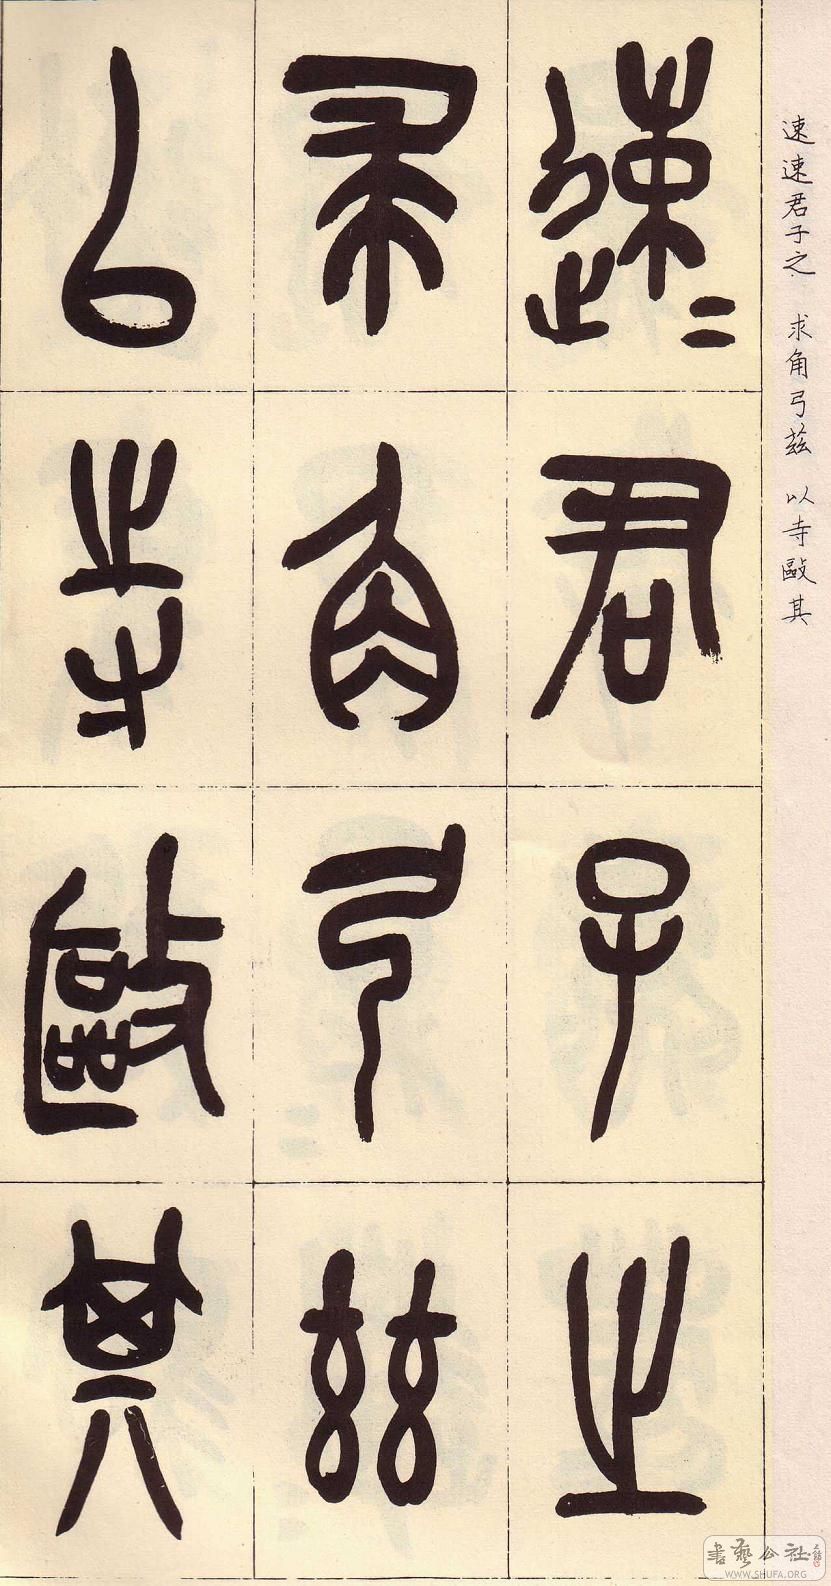 速速君子之 求角弓茲 以寺敺其
速〻君子之
求角弓茲
㠯寺敺其
書藝公社
WWW.SHUFA.ORG